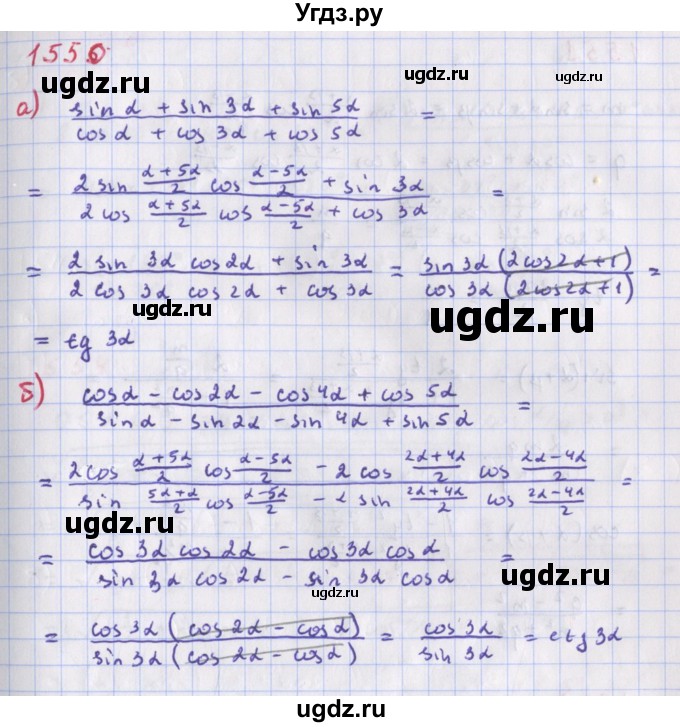 Угдз.ру
1556
ugdz.ru ugdz.ru
а) (sin α + sin 3α + sin 5α)/(cos α + cos 3α + cos 5α) =
= (2 sin (α+5α)/2 cos (α−5α)/2 + sin 3α)/(2 cos (α+5α)/2 cos (α−5α)/2 + cos 3α) =
ugdz.ru
= (2 sin 3α cos 2α + sin 3α)/(2 cos 3α cos 2α + cos 3α) = (sin 3α (2cos2α+1))/(cos 3α (2cos2α+1)) =
ugdz.ru
= tg 3α
ugdz.ru
б) (cos α − cos 2α − cos 4α + cos 5α)/(sin α − sin 2α − sin 4α + sin 5α) =
ugdz.ru
= (2 cos (α+5α)/2 cos (α−5α)/2 − 2 cos (2α+4α)/2 cos (2α−4α)/2)/(sin (5α+α)/2 cos (α−5α)/2 − 2 sin (2α+4α)/2 cos (2α−4α)/2) =
ugdz.ru
ugdz.ru
= (cos 3α cos 2α − cos 3α cos α)/(sin 3α cos 2α − sin 3α cos α) =
ugdz.ru
= (cos 3α (cos 2α − cos α))/(sin 3α (cos 2α − cos α)) = (cos 3α)/(sin 3α) = ctg 3α
ugdz.ru
ugdz.ru